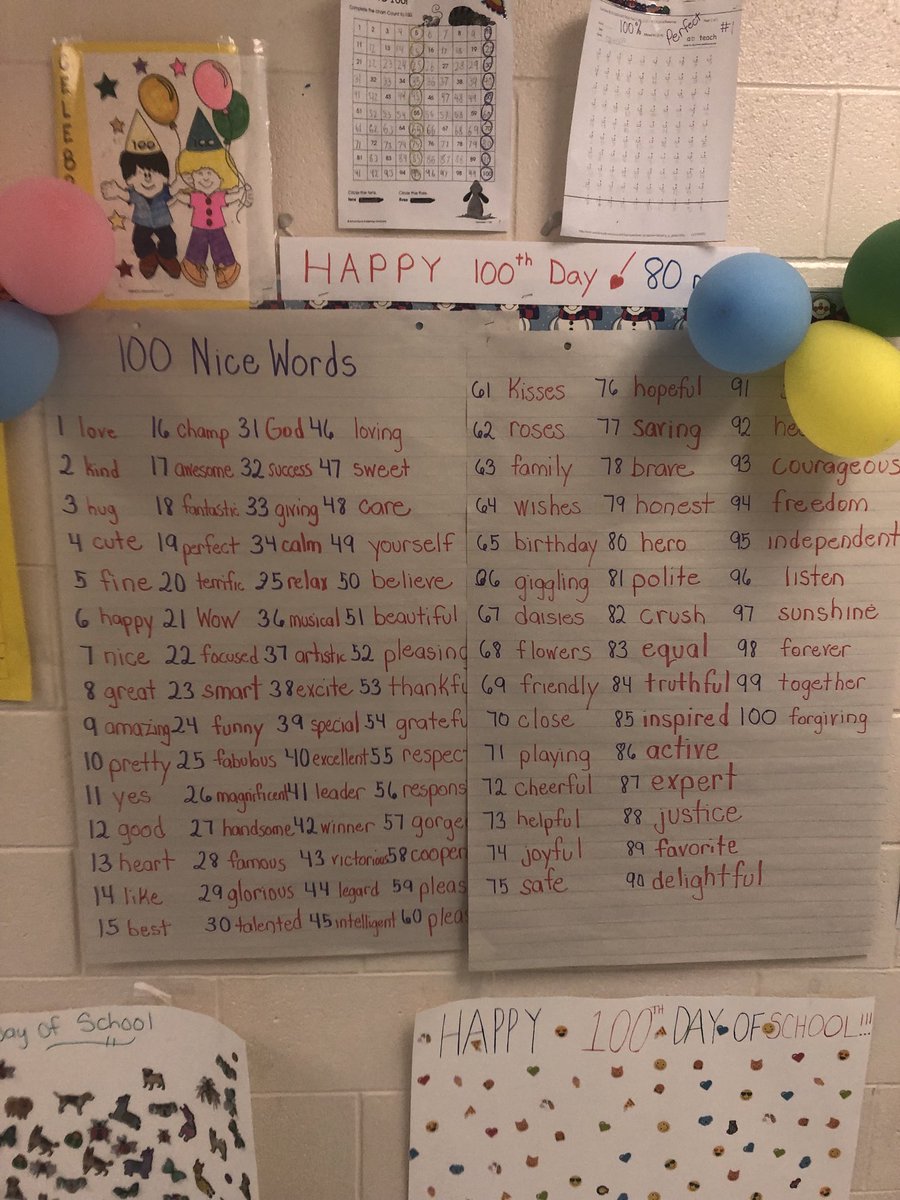 CELEB
100
100%
Perfect
#1
teach
HAPPY 100th Day 80
100 Nice Words
1 love 16 champ 31 God 46 loving
2 kind 17 awesome 32 success 47 sweet
3 hug 18 fantastic 33 giving 48 care
4 cute 19 perfect 34 calm 49 yourself
5 fine 20 terrific 35 relax 50 believe
6 happy 21 Wow 36 musical 51 beautiful
7 nice 22 focused 37 artistic 52 pleasing
8 great 23 smart 38 excite 53 thankfu
9 amazing 24 funny 39 special 54 gratefu
10 pretty 25 fabulous 40 excellent 55 respec
11 yes 26 magnificent 41 leader 56 respons
12 good 27 handsome 42 winner 57 gorge
13 heart 28 famous 43 victorious 58 cooper
14 like 29 glorious 44 legard 59 pleas
15 best 30 talented 45 intelligent 60 pleas
61 kisses 76 hopeful 91
62 roses 77 saving 92 he
63 family 78 brave 93 courageous
64 wishes 79 honest 94 freedom
65 birthday 80 hero 95 independent
66 giggling 81 polite 96 listen
67 daisies 82 crush 97 sunshine
68 flowers 83 equal 98 forever
69 friendly 84 truthful 99 together
70 close 85 inspired 100 forgiving
71 playing 86 active
72 cheerful 87 expert
73 helpful 88 justice
74 joyful 89 favorite
75 safe 90 delightful
Day of School
HAPPY 100TH DAY OF SCHOOL!!!